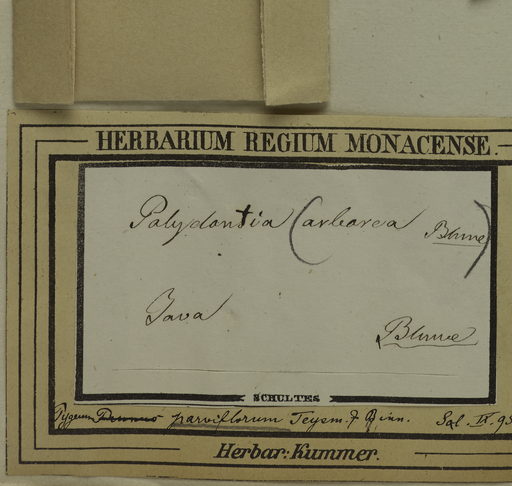 HERBARIUM REGIUM MONACENSE.
Polydontia (arborea Blume)
Java
Blume
SCHULTES
Pygeum Prunus parviflorum Teysm. & Binn. Sal. IX. 95
Herbar: Kummer.